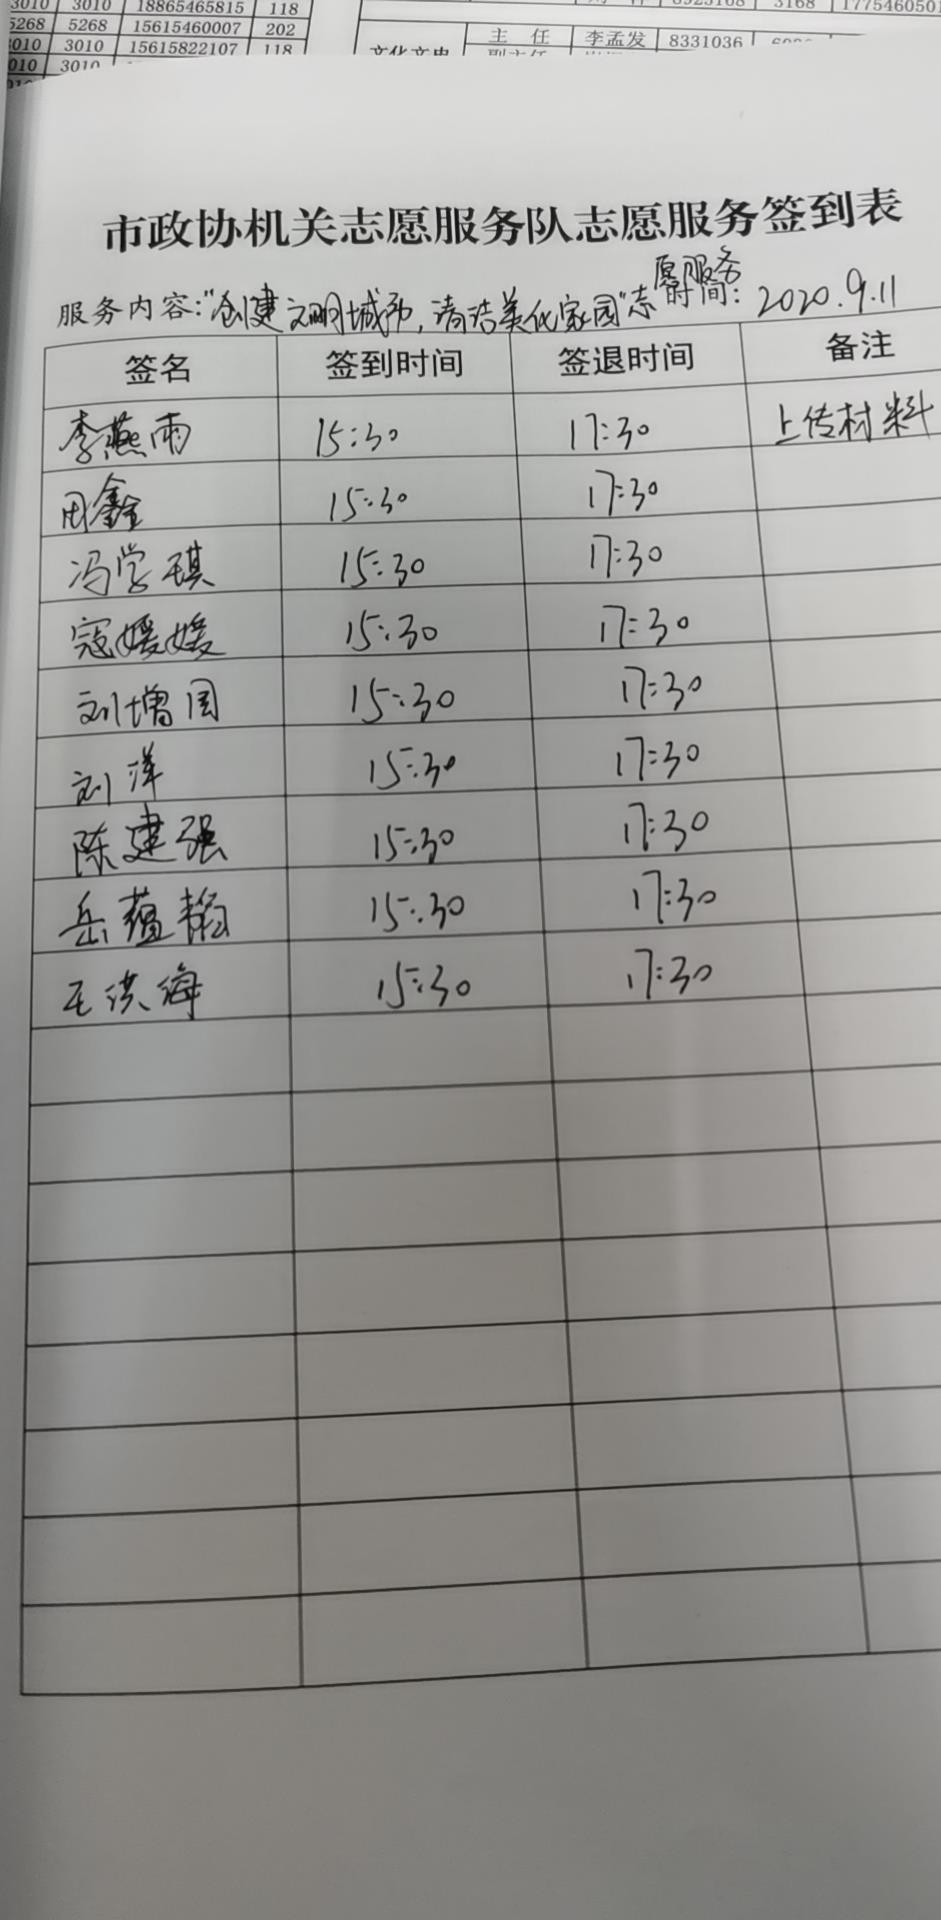 3010 3010 18865465815 118
5268 5268 15615460007 202
3010 3010 15615822107 118
010 3010
3168 1775460501
主 任 李孟发 8331036
市政协机关志愿服务队志愿服务签到表
服务内容:"创建文明城市,清洁美化家园"志愿服务 时间: 2020.9.11
签名 签到时间 签退时间 备注
李燕雨 15:30 17:30 上传材料
田鑫 15:30 17:30
冯学琪 15:30 17:30
寇媛媛 15:30 17:30
刘增国 15:30 17:30
刘洋 15:30 17:30
陈建强 15:30 17:30
岳蕴韬 15:30 17:30
王洪海 15:30 17:30